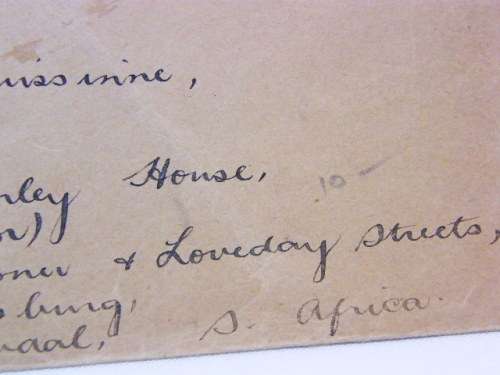 uissinne,
nley House, 10-
or)
oner & Loveday Streets,
sburg,
vaal, S. Africa.